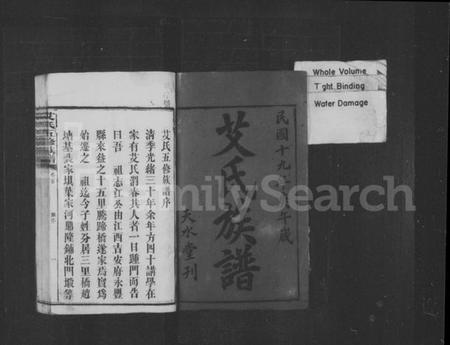 Whole Volume
Tight Binding
Water Damage
民國十九
年歲
艾氏族譜
天水堂刊
FamilySearch
艾氏五修族譜序
清季光緒三十年余年方四十讀學在
家有艾氏渭春其人者一日踵門而告
曰吾 祖志江公由江西吉安府永豐
縣來益之十五里騰蹄橋遂家焉實為
始遷之 祖迄今子姓分居三里橋趙
塘基黃家壩葉家河
北門塅等